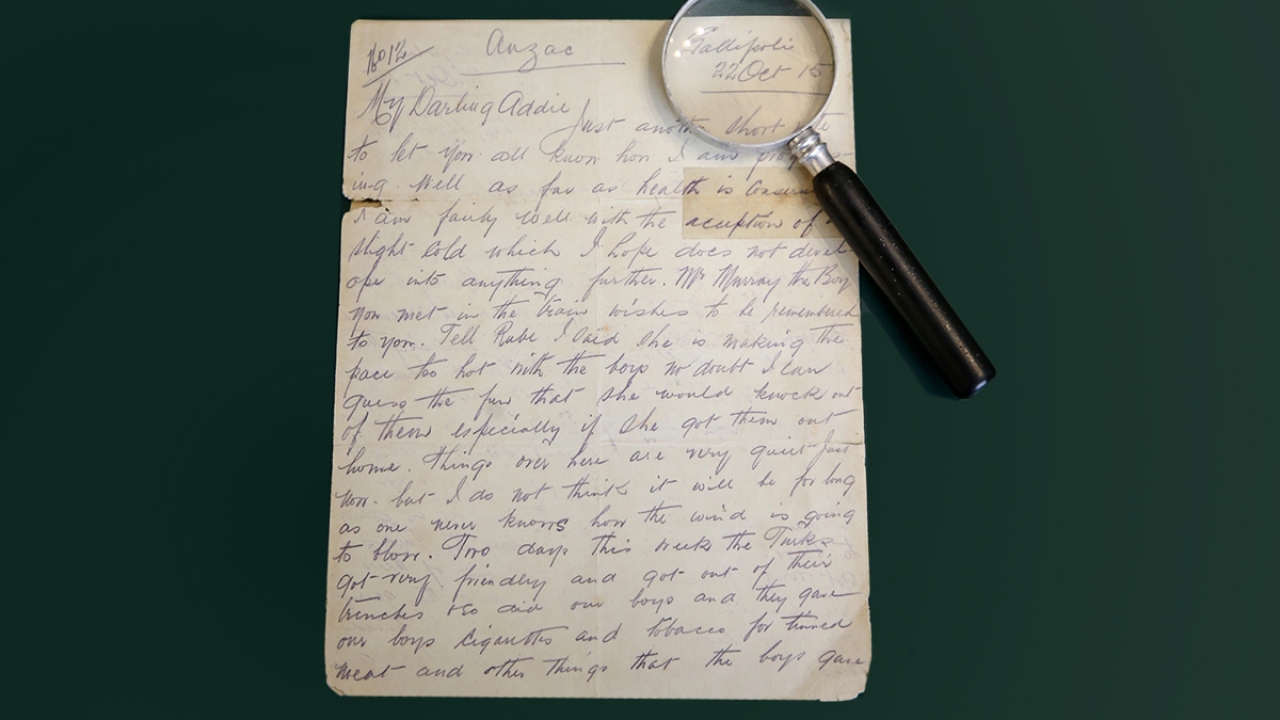 No 12 Anzac Gallipolie
22 Oct 15
My Darling Addie
Just another short note
to let you all know how I am progress-
ing. Well as far as health is concerned
I am fairly well with the exception of a
slight cold which I hope does not devel-
ope into anything further. Mr Murray the Boy
you met in the train wishes to be remembered
to you. Tell Rube I said she is making the
pace too hot with the boys no doubt I can
guess the fun that she would knock out
of them especially if she got them out
home. Things over here are very quiet just
now. but I do not think it will be for long
as one never knows how the wind is going
to blow. Two days this week the Turks
got very friendly and got out of their
trenches so did our boys and they gave
our boys cigarettes and tobacco for tinned
meat and other things that the boys gave